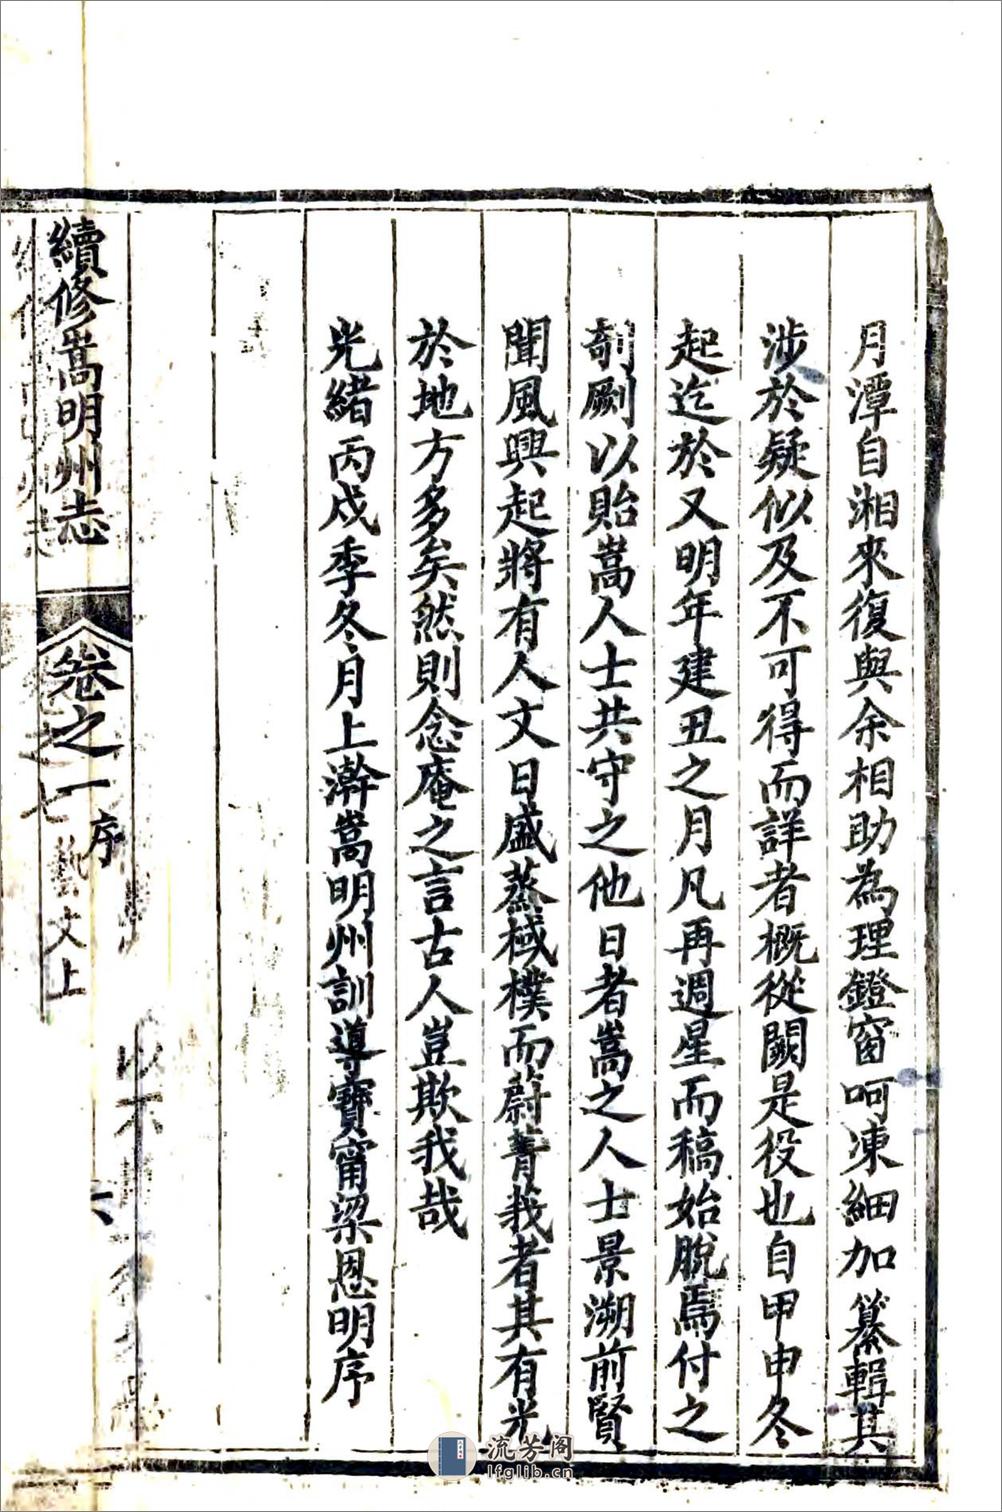 月潭自湘來復與余相助為理鐙窗呵凍細加纂輯其
涉於疑似及不可得而詳者概從闕是役也自甲申冬
起迄於又明年建丑之月凡再週星而稿始脫焉付之
剞劂以貽嵩人士共守之他日者嵩之人士景溯前賢
聞風興起將有人文日盛蒸棫樸而蔚菁莪者其有光
於地方多矣然則念庵之言古人豈欺我哉
光緒丙戌季冬月上澣嵩明州訓導寶甯梁恩明序
續修嵩明州志
卷之一
序
六
藝文上
流芳阁
lfglib.cn